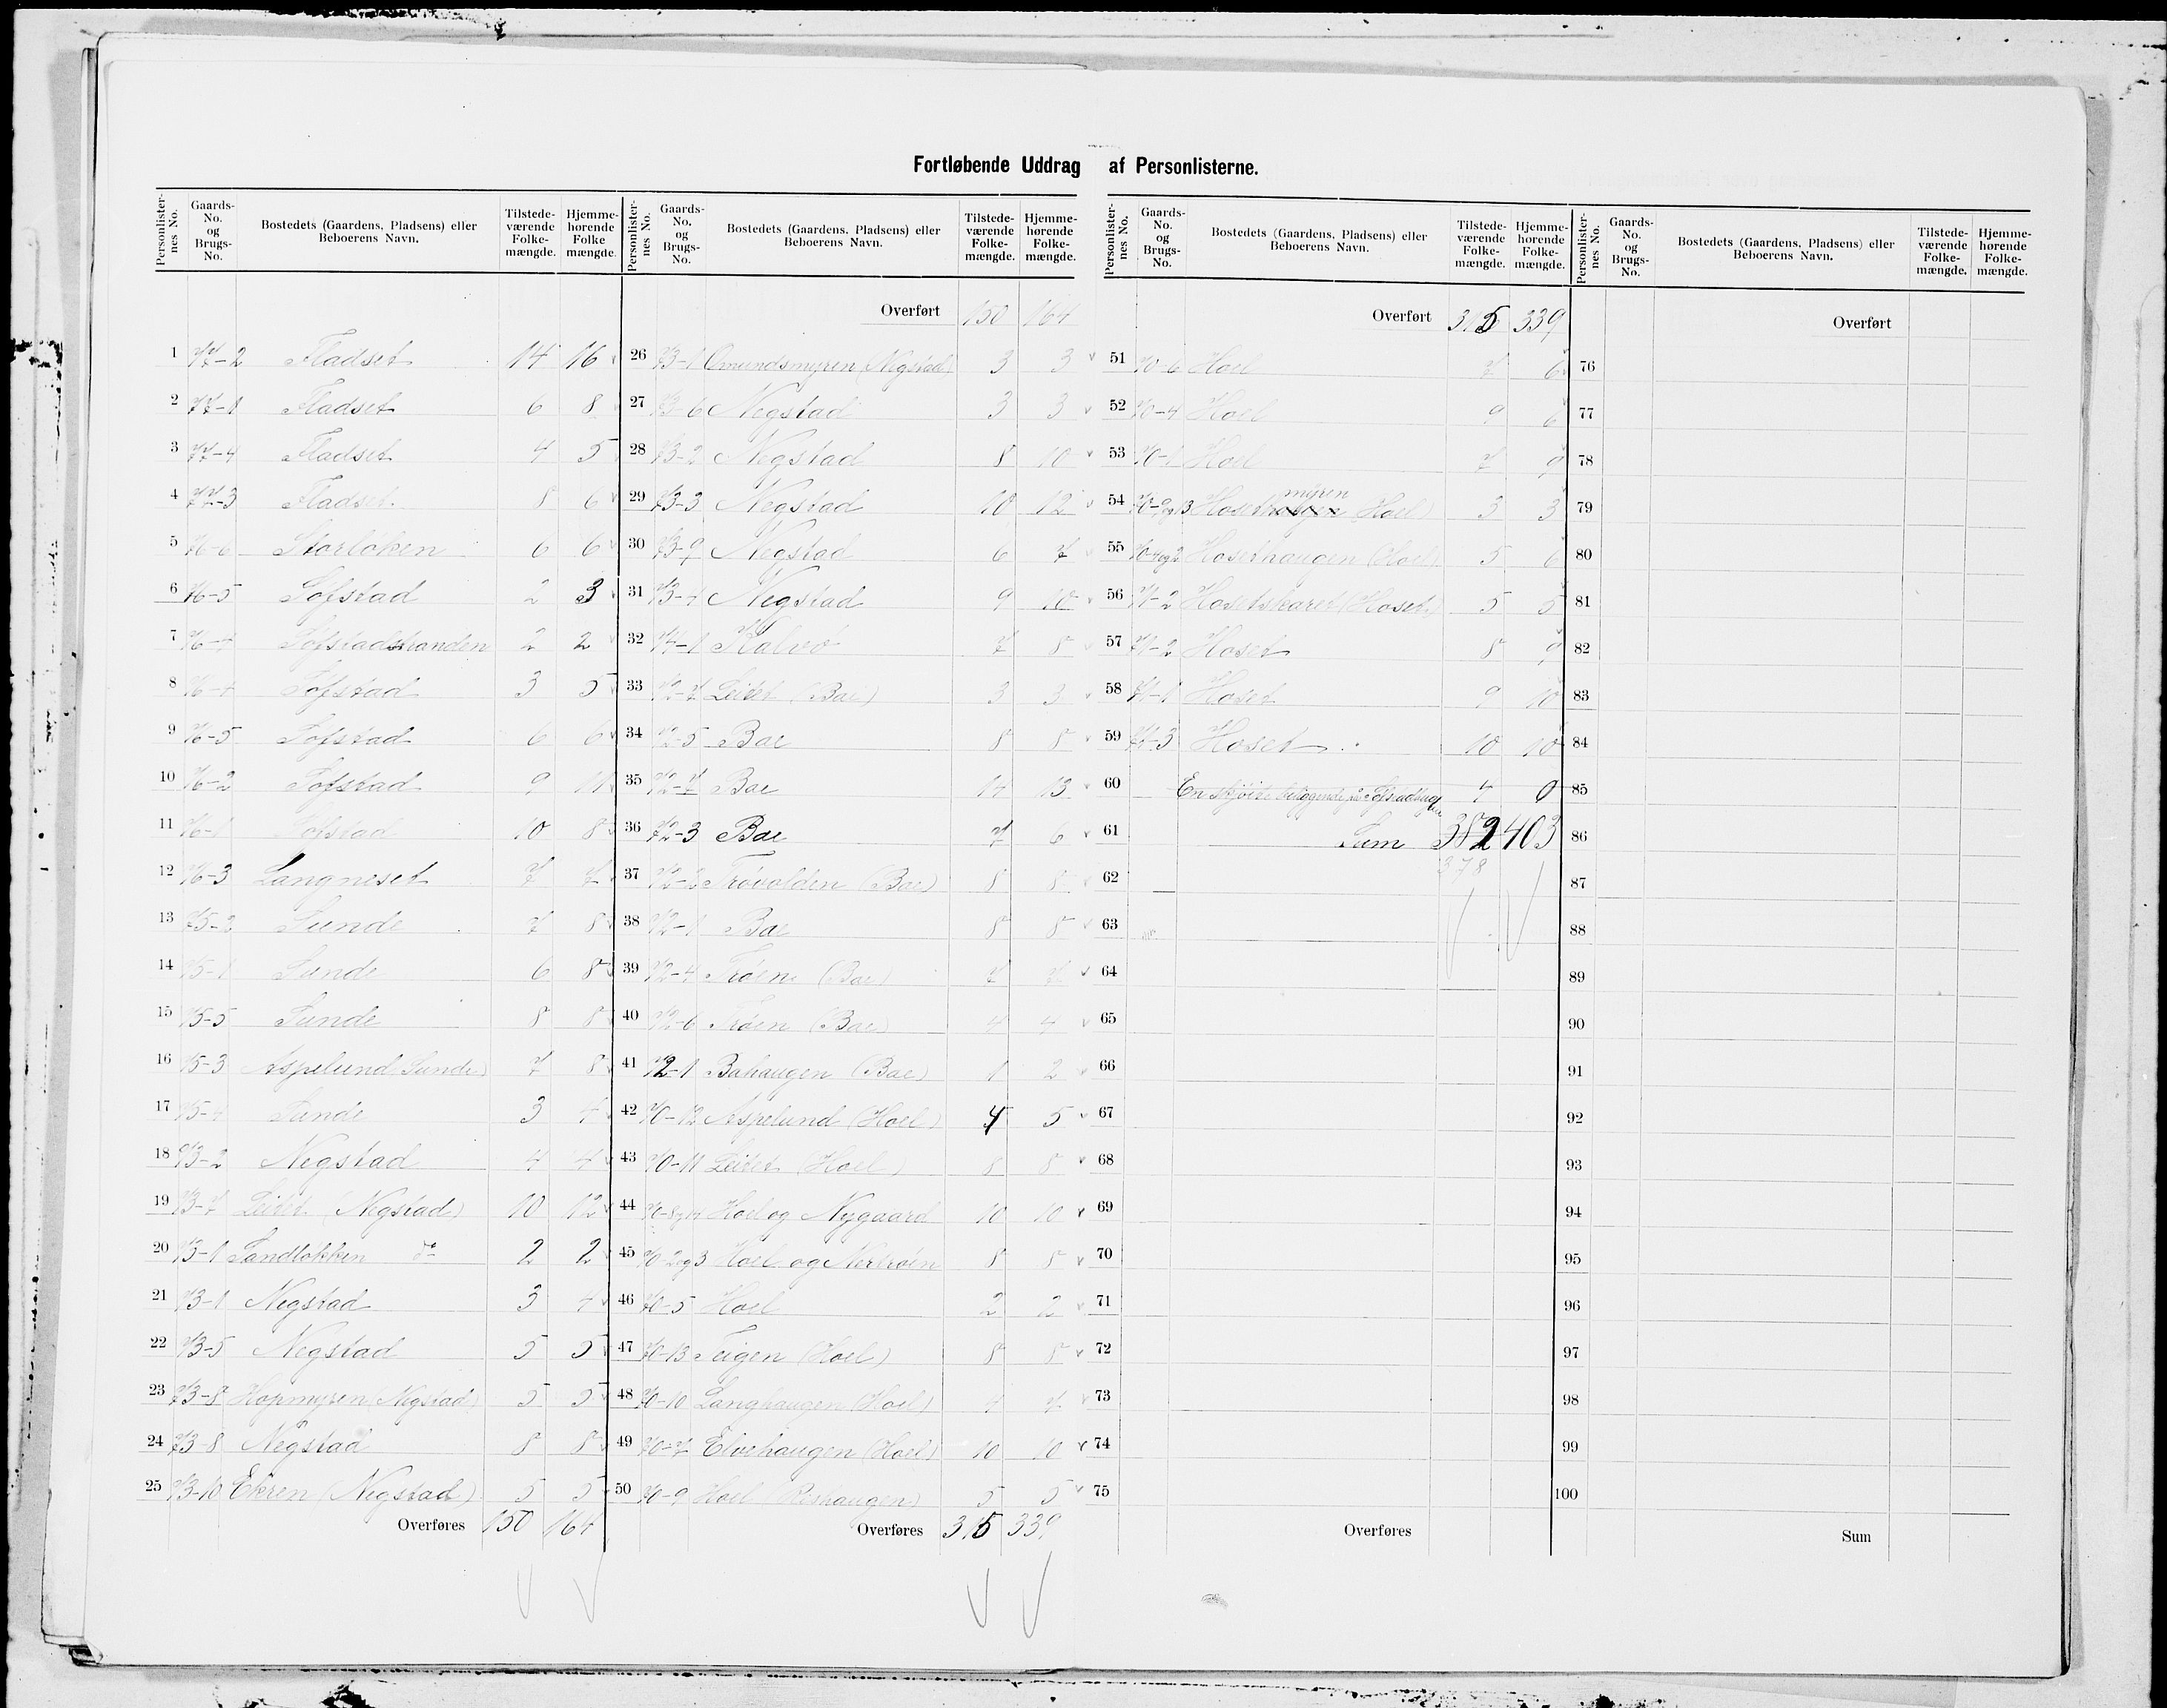 Fortløbende Uddrag af Personlisterne.
Personlister-nes No. Gaards-No. og Brugs-No. Bostedets (Gaardens, Pladsens) eller Beboerens Navn. Tilstede-værende Folke-mængde. Hjemme-hørende Folke mængde.
1 77-2 Fladset 14 16
2 77-1 Fladset 6 8
3 77-4 Fladset 4 5
4 77-3 Fladset 8 6
5 76-6 Storløken 6 6
6 76-5 Tofstad 2 3
7 76-4 Tofstadstranden 2 2
8 76-4 Tofstad 3 5
9 76-5 Tofstad 6 6
10 76-2 Tofstad 9 11
11 76-1 Tofstad 10 8
12 76-3 Langneset 7 7
13 75-2 Sunde 7 8
14 75-1 Sunde 6 8
15 75-5 Sunde 8 8
16 75-3 Aspelund Sunde) 7 8
17 75-4 Sunde 3 4
18 73-2 Negstad 4 4
19 73-7 Leitet (Negstad) 10 12
20 73-1 Sandløkken do 2 2
21 73-1 Negstad 3 4
22 73-5 Negstad 5 5
23 73-8 Hopmyren Negstad) 5 5
24 73-8 Negstad 8 8
25 73-10 Ekren (Negstad) 5 5
Overføres 150 164
Personlister-nes No. Gaards-No. og Brugs-No. Bostedets (Gaardens, Pladsens) eller Beboerens Navn. Tilstede-værende Folke-mængde. Hjemme-hørende Folke-mængde.
Overført 150 164
26 73-1 Omundsmyren (Negstad) 3 3
27 73-6 Negstad 3 3
28 73-2 Negstad 8 10
29 73-3 Negstad 10 12
30 73-9 Negstad 6 7
31 73-4 Negstad 9 10
32 74-1 Kalvø 7 8
33 72-7 Leitet (Bae) 3 3
34 72-5 Bae 8 8
35 72-7 Bae 14 13
36 72-3 Bae 7 6
37 72-2 Trøvolden (Bae) 8 8
38 72-1 Bae 8 8
39 72-4 Trøen (Bae) 7 7
40 72-6 Trøen (Bae) 4 4
41 72-1 Bahaugen (Bae) 1 2
42 70-12 Aspelund (Hoel) 4 5
43 70-11 Leitet (Hoel) 8 8
44 70-8 og 14 Hoel og Nygaard 10 10
45 70 2 og 3 Hoel og Nertrøen 8 8
46 70-5 Hoel 2 2
47 70-13 Teigen (Hoel) 8 8
48 70-10 Langhaugen (Hoel) 4 7
49 70-7 Elvehaugen (Hoel) 10 10
50 70-9 Hoel (Reshaugen) 5 5
Overføres 315 339
Personlister-nes No. Gaards-No. og Brugs-No. Bostedets (Gaardens, Pladsens) eller Beboerens Navn. Tilstede-værende Folke-mængde. Hjemme-hørende Folke-mængde.
Overført 315 339
51 70-6 Hoel 7 6
52 70-4 Hoel 9 6
53 70-1 Hoel 7 9
54 70-9 og 13 Hoset myren (Hoel) 3 3
55 70-4 og 2 Hosethaugen (Hoel) 5 6
56 71-2 Hosetskaret (Hoset) 5 5
57 71-2 Hoset 8 9
58 71-1 Hoset 9 10
59 71-3 Hoset 10 10
60 En skjøite beliggende på Tofstadvågen 4 0
61 Sum 382 403
62 378
63
64
65
66
67
68
69
70
71
72
73
74
75
Overføres
Personlister-nes No. Gaards-No. og Brugs-No. Bostedets (Gaardens, Pladsens) eller Beboerens Navn. Tilstede-værende Folke-mængde. Hjemme-hørende Folke-mængde.
Overført
76
77
78
79
80
81
82
83
84
85
86
87
88
89
90
91
92
93
94
95
96
97
98
99
100
Sum